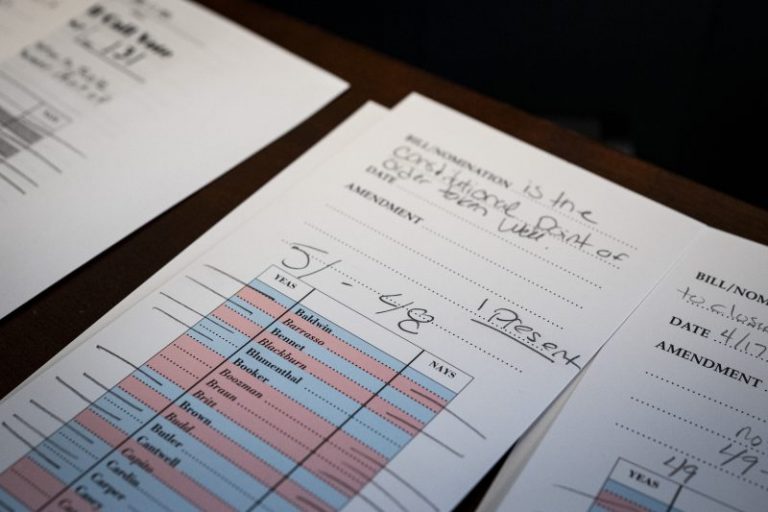 ll Call Vote
131
NAYS
BILL/NOMINATION is the
Constitutional Point of
Order
DATE
AMENDMENT
51 - 48
1 Present
YEAS
NAYS
Baldwin
Barrasso
Bennet
Blackburn
Blumenthal
Booker
Boozman
Braun
Britt
Brown
Budd
Butler
Cantwell
Capito
Cardin
Carper
Casey
BILL/NOM
to
DATE 4/17
AMENDMENT
49
YEAS